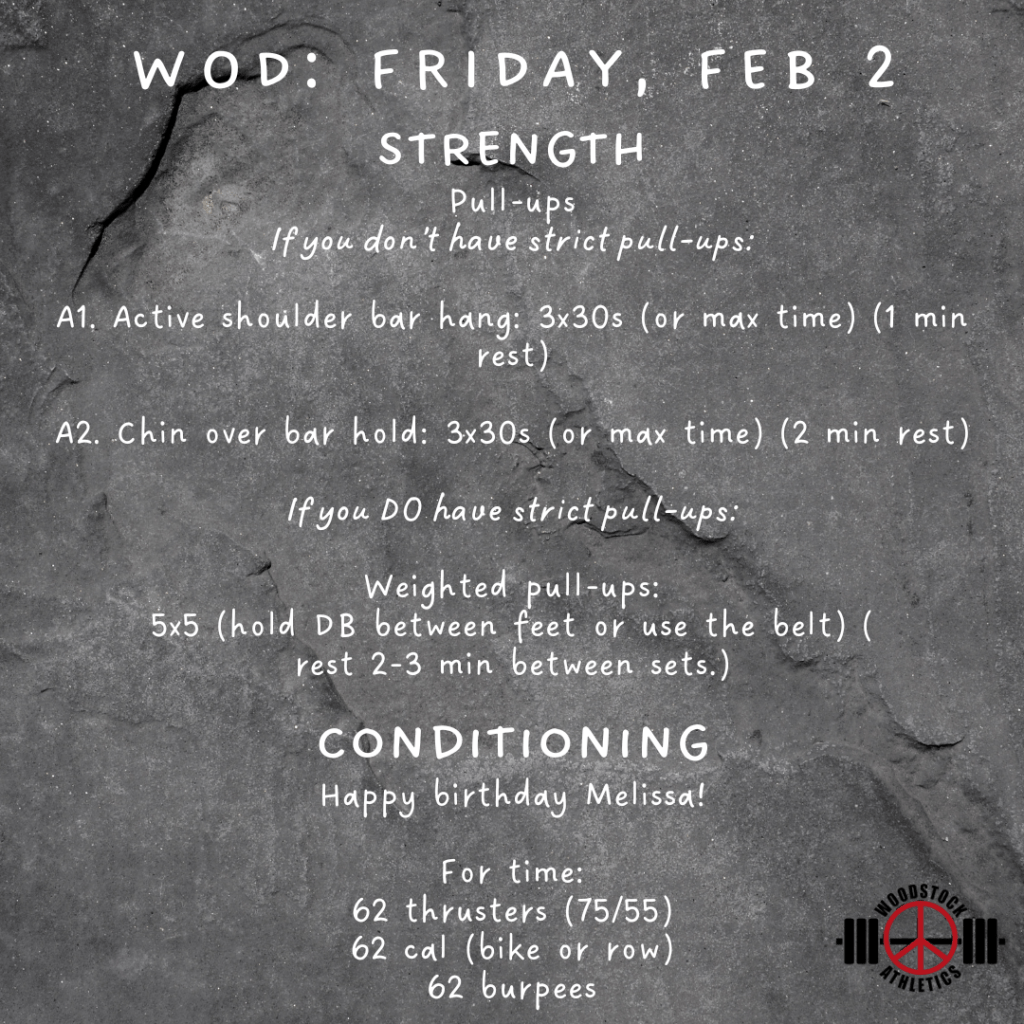 WOD: FRIDAY, FEB 2
STRENGTH
Pull-ups
If you don't have strict pull-ups:
A1. Active shoulder bar hang: 3x30s (or max time) (1 min
rest)
A2. Chin over bar hold: 3x30s (or max time) (2 min rest)
If you DO have strict pull-ups:
Weighted pull-ups:
5x5 (hold DB between feet or use the belt) (
rest 2-3 min between sets.)
CONDITIONING
Happy birthday Melissa!
For time:
62 thrusters (75/55)
62 cal (bike or row)
62 burpees
WOODSTOCK
ATHLETICS